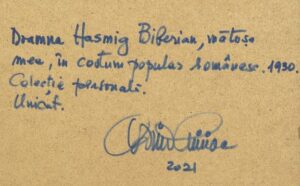 Doamna Hasmig Biberian, mătușa
mea, în costum popular românesc. 1930.
Colecție personală.
Unicat.
2021